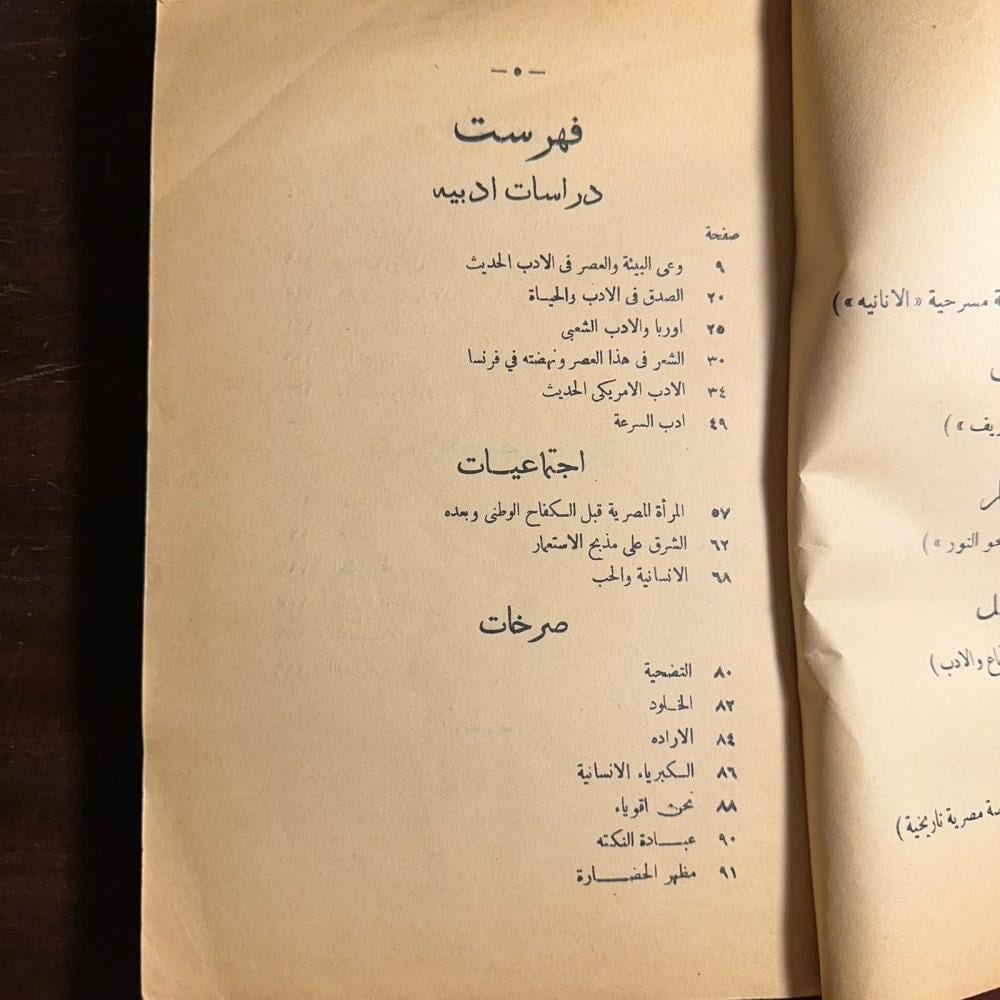 — ٥ —
فهرست
دراسات ادبيه
صفحة
٩ وعى البيئة والعصر فى الادب الحديث
٢٠ الصدق فى الادب والحياة
٢٥ اوربا والادب الشعبى
٣٠ الشعر فى هذا العصر ونهضته في فرنسا
٣٤ الادب الامريكى الحديث
٤٩ ادب السرعة
اجتماعيات
٥٧ المرأة المصرية قبل الكفاح الوطنى وبعده
٦٢ الشرق على مذبح الاستعمار
٦٨ الانسانية والحب
صرخات
٨٠ التضحية
٨٢ الخلود
٨٤ الاراده
٨٦ الكبرياء الانسانية
٨٨ نحن اقوياء
٩٠ عبادة النكته
٩١ مظهر الحضارة
مسرحية « الانانيه » )
النور » )
والادب )
مصرية تاريخية )